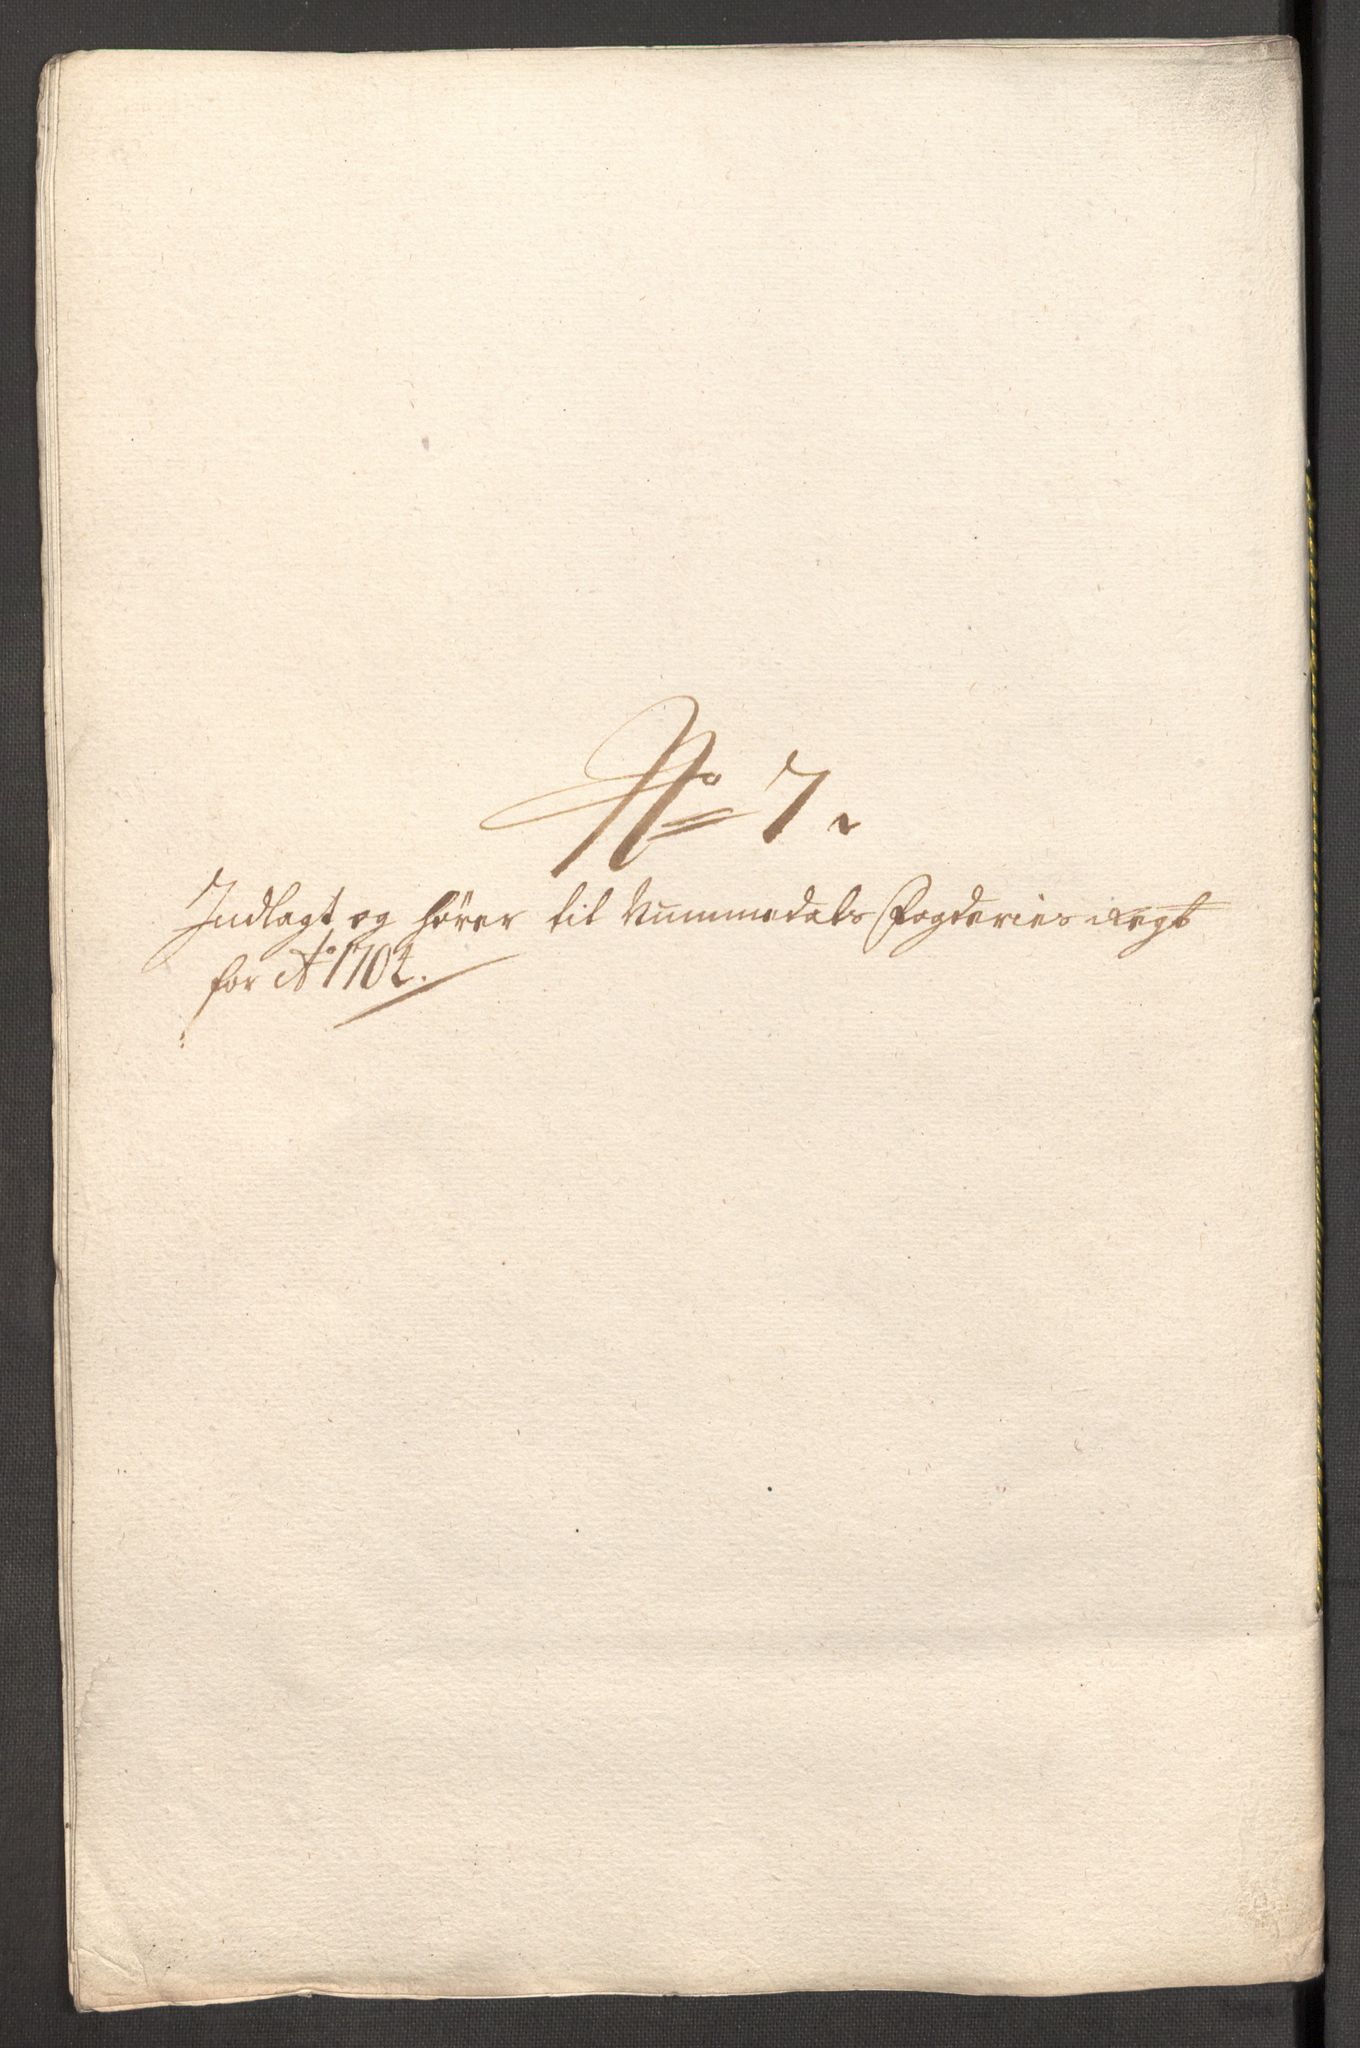 No 7.
Indlagt og hörer til Nummedals Fogderies Regt
for Ao 1704.